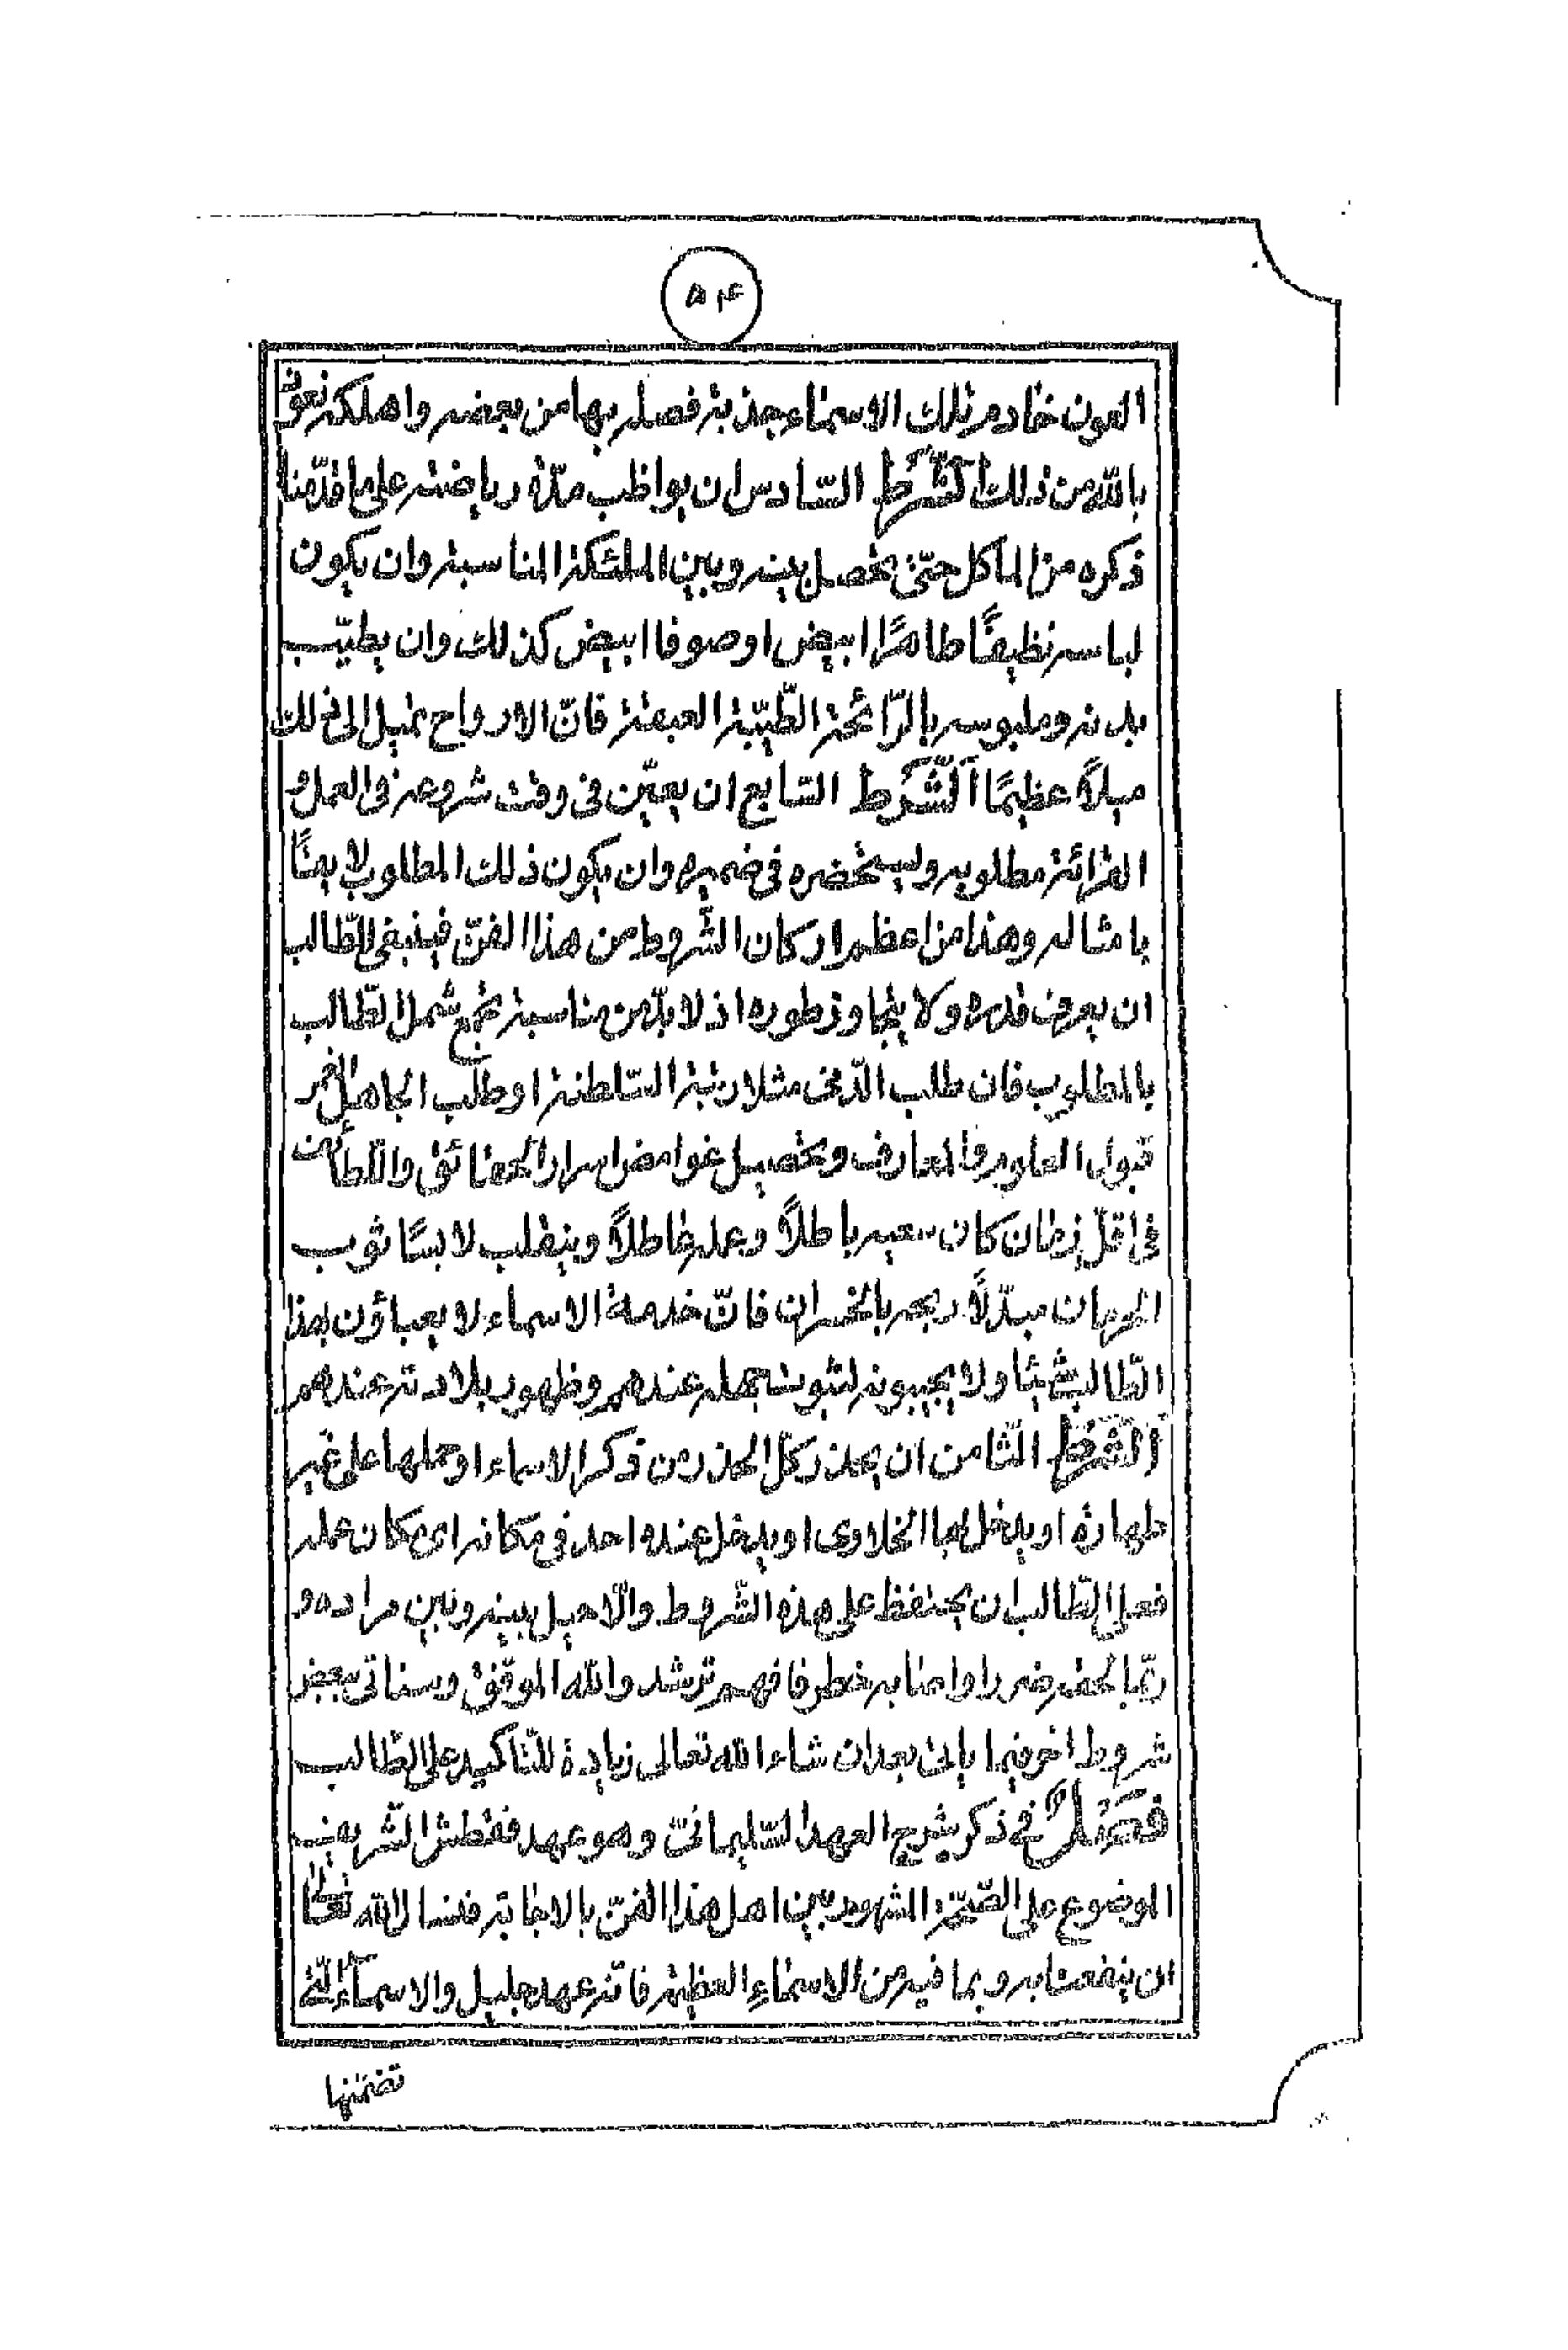 ۵۴
العون خادم تلك الاسماء جذبة فصل بها من بعضه واهلكه نعوذ
بالله من ذلك الشَّرط السّادس ان يواظب مدّة رياضته على ما قدّمنا
ذكره من المأكل حتّى تحصل بينه وبين الملئكة المناسبة وان يكون
لباسه نظيفًا طاهرًا ابيض اوصوفا ابيض كذلك وان يطيّب
بدنه وملبوسه بالرّائحة الطّيّبة العبقة فانّ الارواح تميل الى ذلك
ميلاً عظيمًا اَلشَّرط السّابع ان يعيّن فى وقت شروعه فى العمل و
القرائة مطلوبه ويستحضره فى ضميره وان يكون ذلك المطلوب لايقًا
بامثاله وهذا من اعظم اركان الشّروط من هذا الفنّ فينبغى للطّالب
ان يعرف قدره ولا يتجاوز طوره اذ لا بدّ من مناسبة تجمع شمل الطّالب
بالمطلوب فان طلب الدّنى مثلا رتبة السّلطنة او طلب الجاهل الغمر
قبول العلوم والمعارف وتحصيل غوامض اسرار الحقائق واللّطائف
فى اقلّ زمان كان سعيه باطلاً وعمله عاطلاً وينقلب لابسًا ثوب
الحرمان مبدّلاً ربحه بالخسران فانّ خدمة الاسماء لا يعباؤن بهذا
الطّالب شيئا ولا يجيبونه لثبوت جهله عندهم وظهور بلادته عندهم
اَلشَّرط الثّامن ان يحذر كلّ الحذر من ذكر الاسماء او حملها على غير
طهارة او يدخل بها الخلاوى او يدخل عنده احد فى مكانه اى مكان عمله
فعلى الطّالب ان يحتفظ على هذه الشّروط والّا حيل بينه وبين مراده و
ربّما لحقه ضررا واصابه خطر فافهم ترشد والله الموفّق وسناتى ببعض
شروط اخر فيما يأتى بعد ان شاء الله تعالى زيادة للتّاكيد على الطّالب
فصل فى ذكر شرح العهد السّليمانىّ وهو عهد ففطش الشّريف
الموضوع على الصّحّة المشهور بين اهل هذا الفنّ بالاجابة فنسال الله تعالى
ان ينفعنا به وبما فيه من الاسماء العظيمة فانّه عهد جليل والاسماء الّتى
تضمّنها